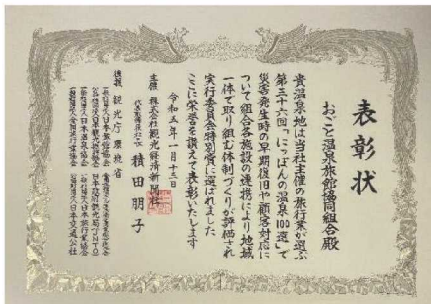 表彰状
おごと温泉旅館協同組合殿
貴温泉地は当社主催の旅行業が選ぶ
第三十六回「にっぽんの温泉100選」で
災害発生時の早期復旧や顧客対応に
ついて組合各施設の連携により地域
一体で取り組む体制づくりが評価され
実行委員会特別賞に選ばれました
ここに栄誉を讃えて表彰いたします
令和五年一月十三日
主催 株式会社観光経済新聞社
代表取締役社長 積田朋子
後援 観光庁 環境省